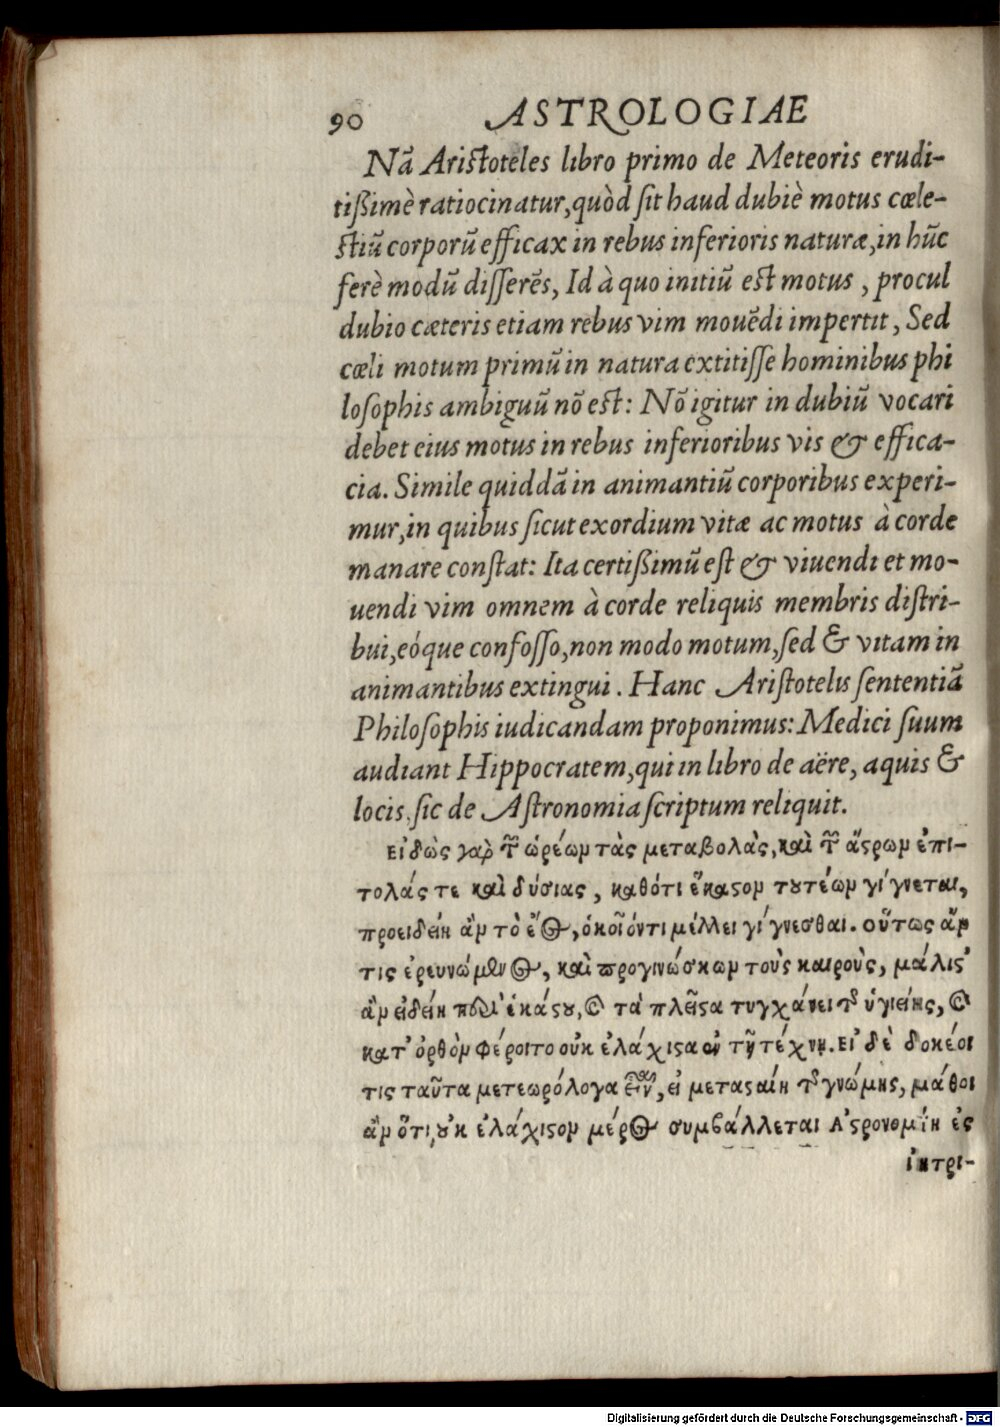 90 ASTROLOGIAE
Nã Aristoteles libro primo de Meteoris erudi-
tißimè ratiocinatur, quòd ſit haud dubiè motus cœle-
stiũ corporũ efficax in rebus inferioris naturæ, in hũc
ferè modũ diſſerẽs, Id à quo initiũ est motus , procul
dubio cæteris etiam rebus vim mouẽdi impertit , Sed
cœli motum primũ in natura extitiſſe hominibus phi
loſophis ambiguũ nõ est: Nõ igitur in dubiũ vocari
debet eius motus in rebus inferioribus vis & effica-
cia. Simile quiddã in animantiũ corporibus experi-
mur, in quibus ſicut exordium vitæ ac motus à corde
manare conſtat: Ita certißimũ eſt & viuendi et mo-
uendi vim omnem à corde reliquis membris diſtri-
bui, eóque confoſſo, non modo motum, ſed & vitam in
animantibus extingui . Hanc Ariſtotelis ſententiã
Philoſophis iudicandam proponimus: Medici ſuum
audiant Hippocratem, qui in libro de aëre, aquis &
locis, ſic de Aſtronomia ſcriptum reliquit.
Εἰδὼς γαρ τῶν ὡρέων τὰς μεταβολὰς, καὶ τῶν ἄϛρων ἐπι-
τολάς τε καὶ δύσιας , καθότι ἕκαϛον τȣτέων γίγνεται,
προειδείη ἂν τὸ ἔτος, ὁκοῖόν τι μέλλει γίγνεσθαι. οὕτως ἄν
τις ἐρευνώμενος, καὶ προγινώσκων τοὺς καιροὺς, μάλιϛ’
ἂν εἰδείη περὶ ἑκάϛȣ, καὶ τὰ πλεῖϛα τυγχάνει τῆς ὑγιείης, καὶ
κατ’ ὀρθὸν φέροιτο οὐκ ἐλάχιϛα ἐν τῇ τέχνῃ. Εἰ δὲ δοκέοι
τις ταῦτα μετεωρόλογα εἶναι, εἰ μεταϛαίη τῆς γνώμης, μάθοι
ἂν ὅτι ȣκ ἐλάχιϛον μέρος συμβάλλεται Ἀϛρονομίη ἐς
ἰητρι-
Digitalisierung gefördert durch die Deutsche Forschungsgemeinschaft - DFG